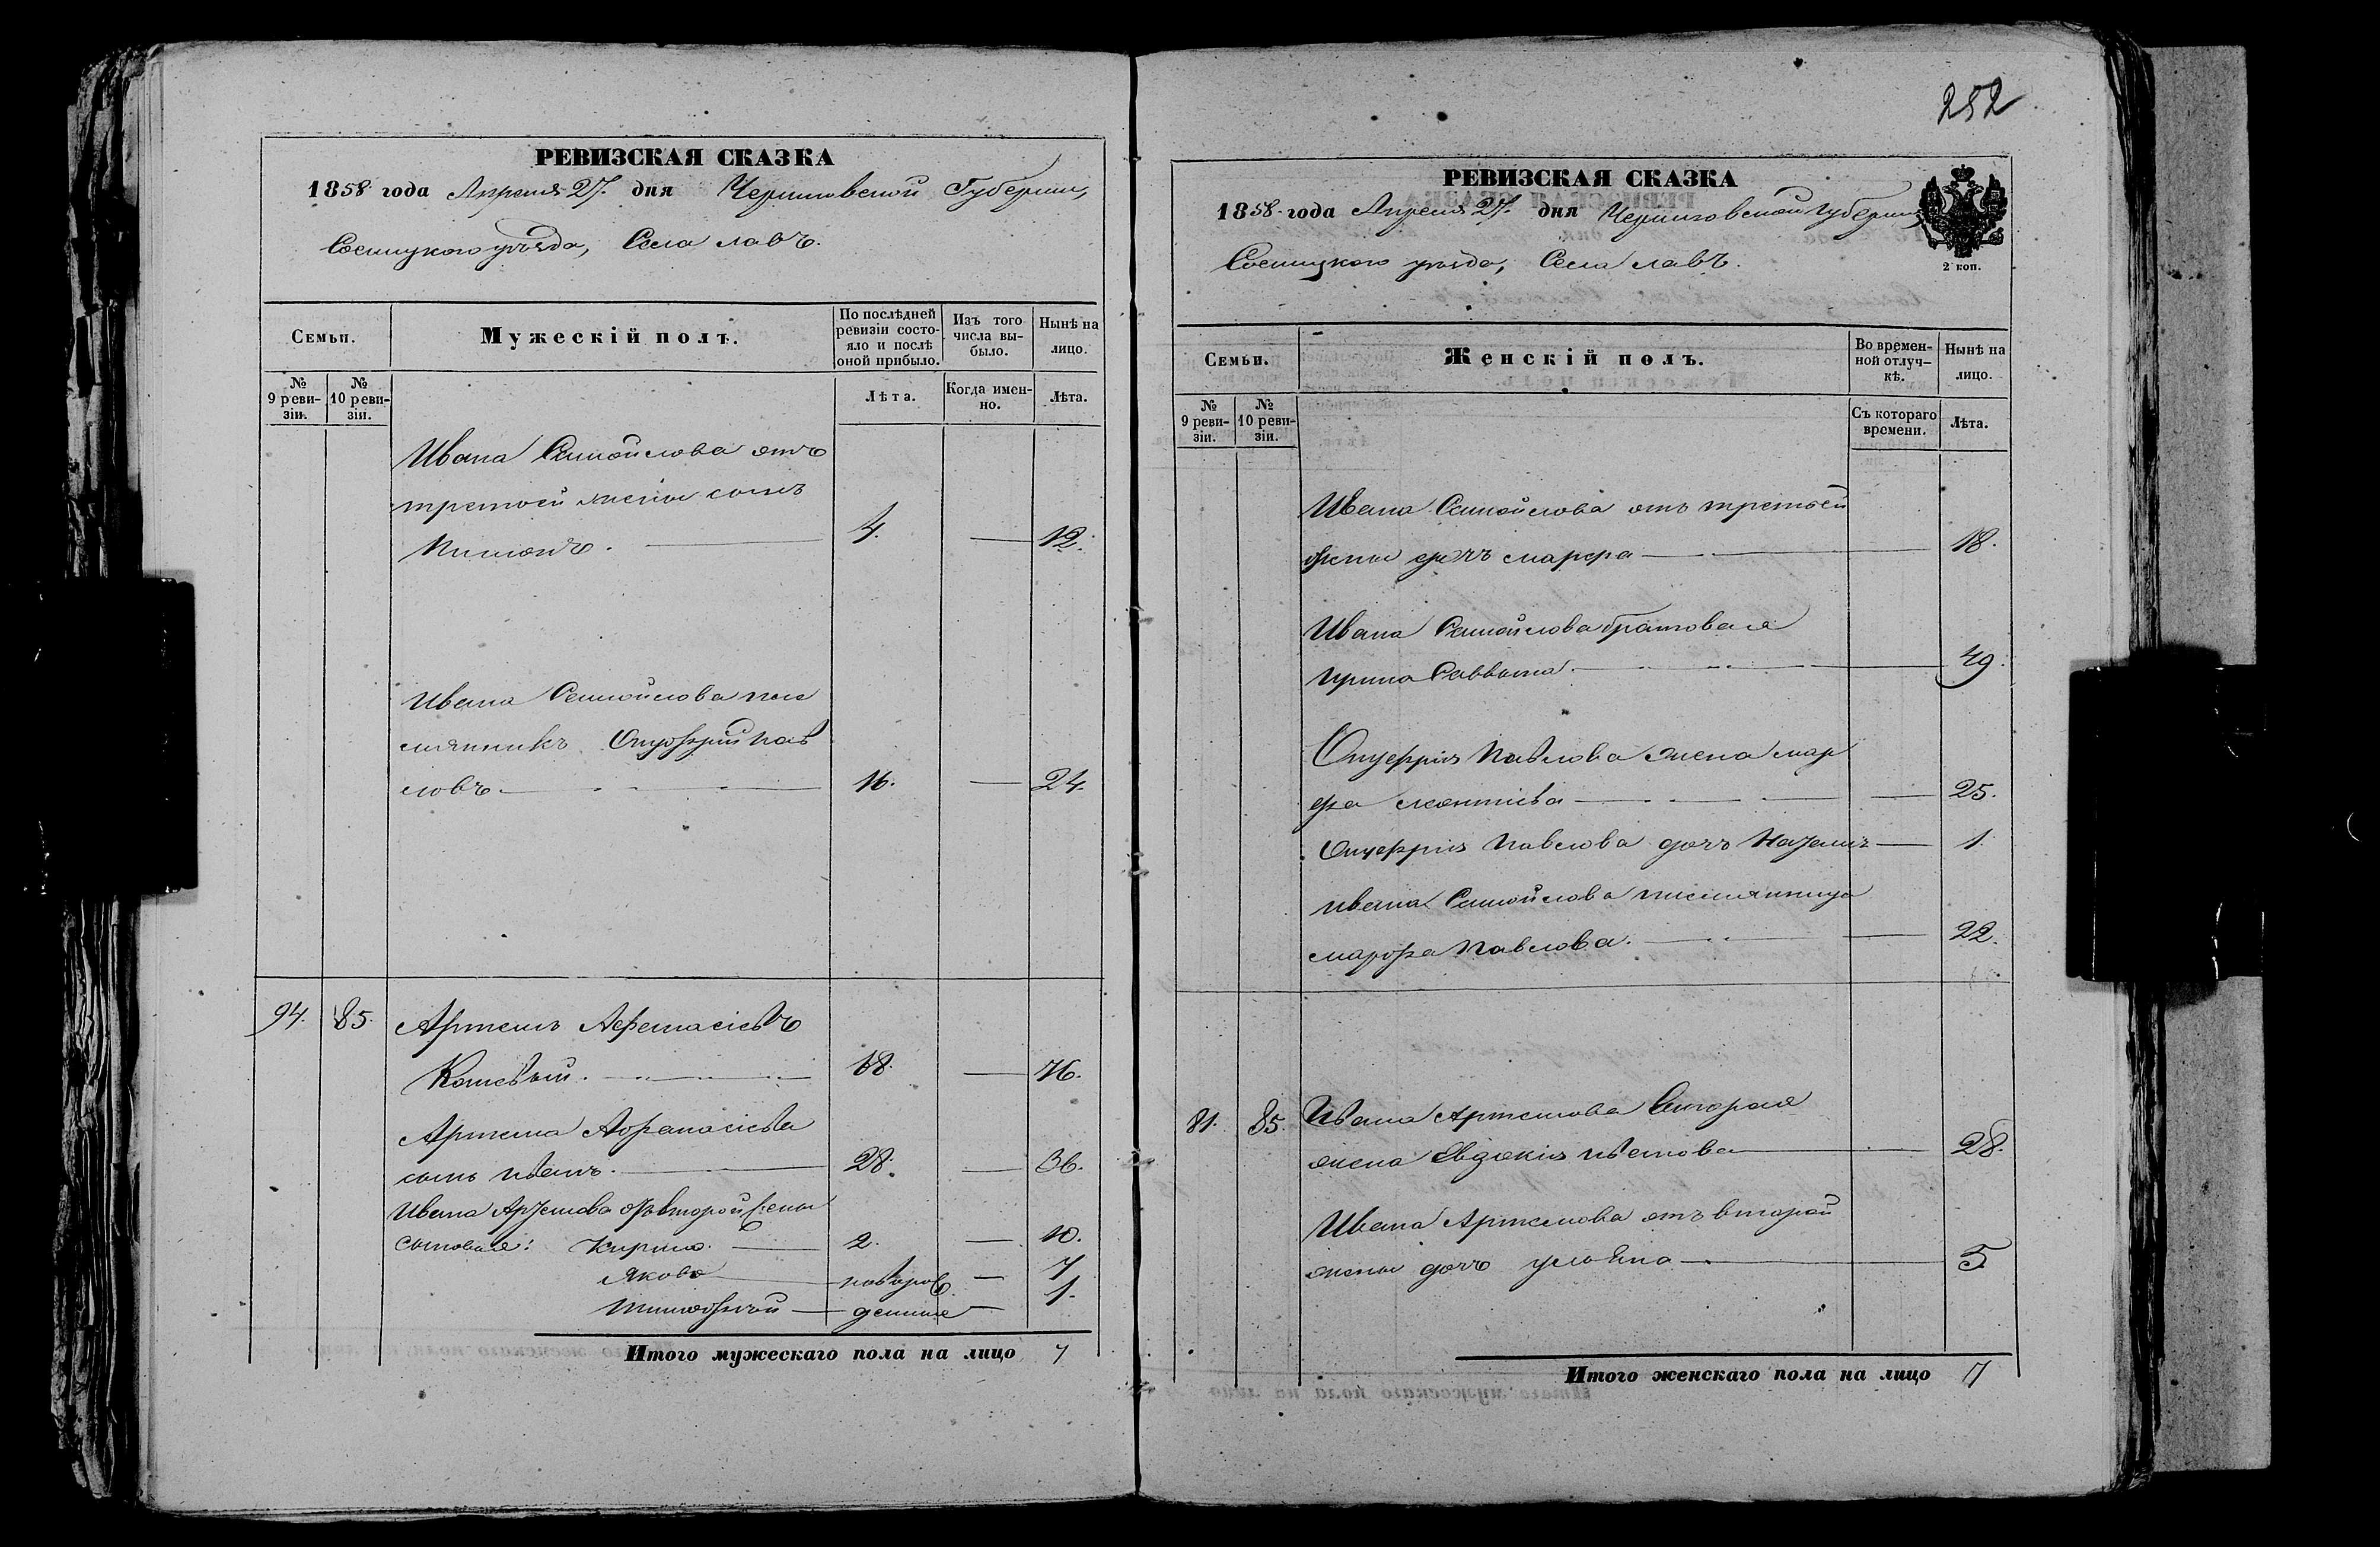 РЕВИЗСКАЯ СКАЗКА
1858 года Апреля 27. дня Черниговской Губернии,
Сосницкого уѣзда, Села Лавъ.
Семьи.
Мужескій полъ.
По послѣдней ревизіи состояло и послѣ оной прибыло.
Изъ того числа выбыло.
Нынѣ на лицо.
№ 9 ревизіи.
№ 10 ревизіи.
Лѣта.
Когда именно.
Лѣта.
Ивана Самойлова отъ
третьей жены сынъ
Пименъ. 4. — 12.
Ивана Самойлова пле
мянникъ Онуфрій Пав
ловъ — 16. — 24.
94. 85. Артемъ Афанасіевъ
18. — 76.
Артема Афанасіева
сынъ Иванъ. — 28. — 36.
Ивана Артемова отъ второй жены
сыновья: Кирило. — 2. — 10.
Яковъ — новорож — 7
Тимофѣй — денные — 1.
Итого мужескаго пола на лицо 7
252
РЕВИЗСКАЯ СКАЗКА
1858 года Апреля 27. дня Черниговской Губернии,
Сосницкого уѣзда, Села Лавъ.
2 коп.
Семьи.
Женскій полъ.
Во временной отлучкѣ.
Нынѣ на лицо.
№ 9 ревизіи.
№ 10 ревизіи.
Съ котораго времени.
Лѣта.
Ивана Самойлова отъ третьей
жены дочь Марфа — 18.
Ивана Самойлова братовая
Ирина Саввина. — 49.
Онуфрія Павлова жена Мар
фа — 25.
Онуфрія Павлова дочь — 1.
Ивана Самойлова племянница
Марфа Павлова. — 22.
81. 85. Ивана Артемова вторая
жена Евдокія Иванова — 28.
Ивана Артемова отъ второй
жены дочь Ульяна — 5.
Итого женскаго пола на лицо 7